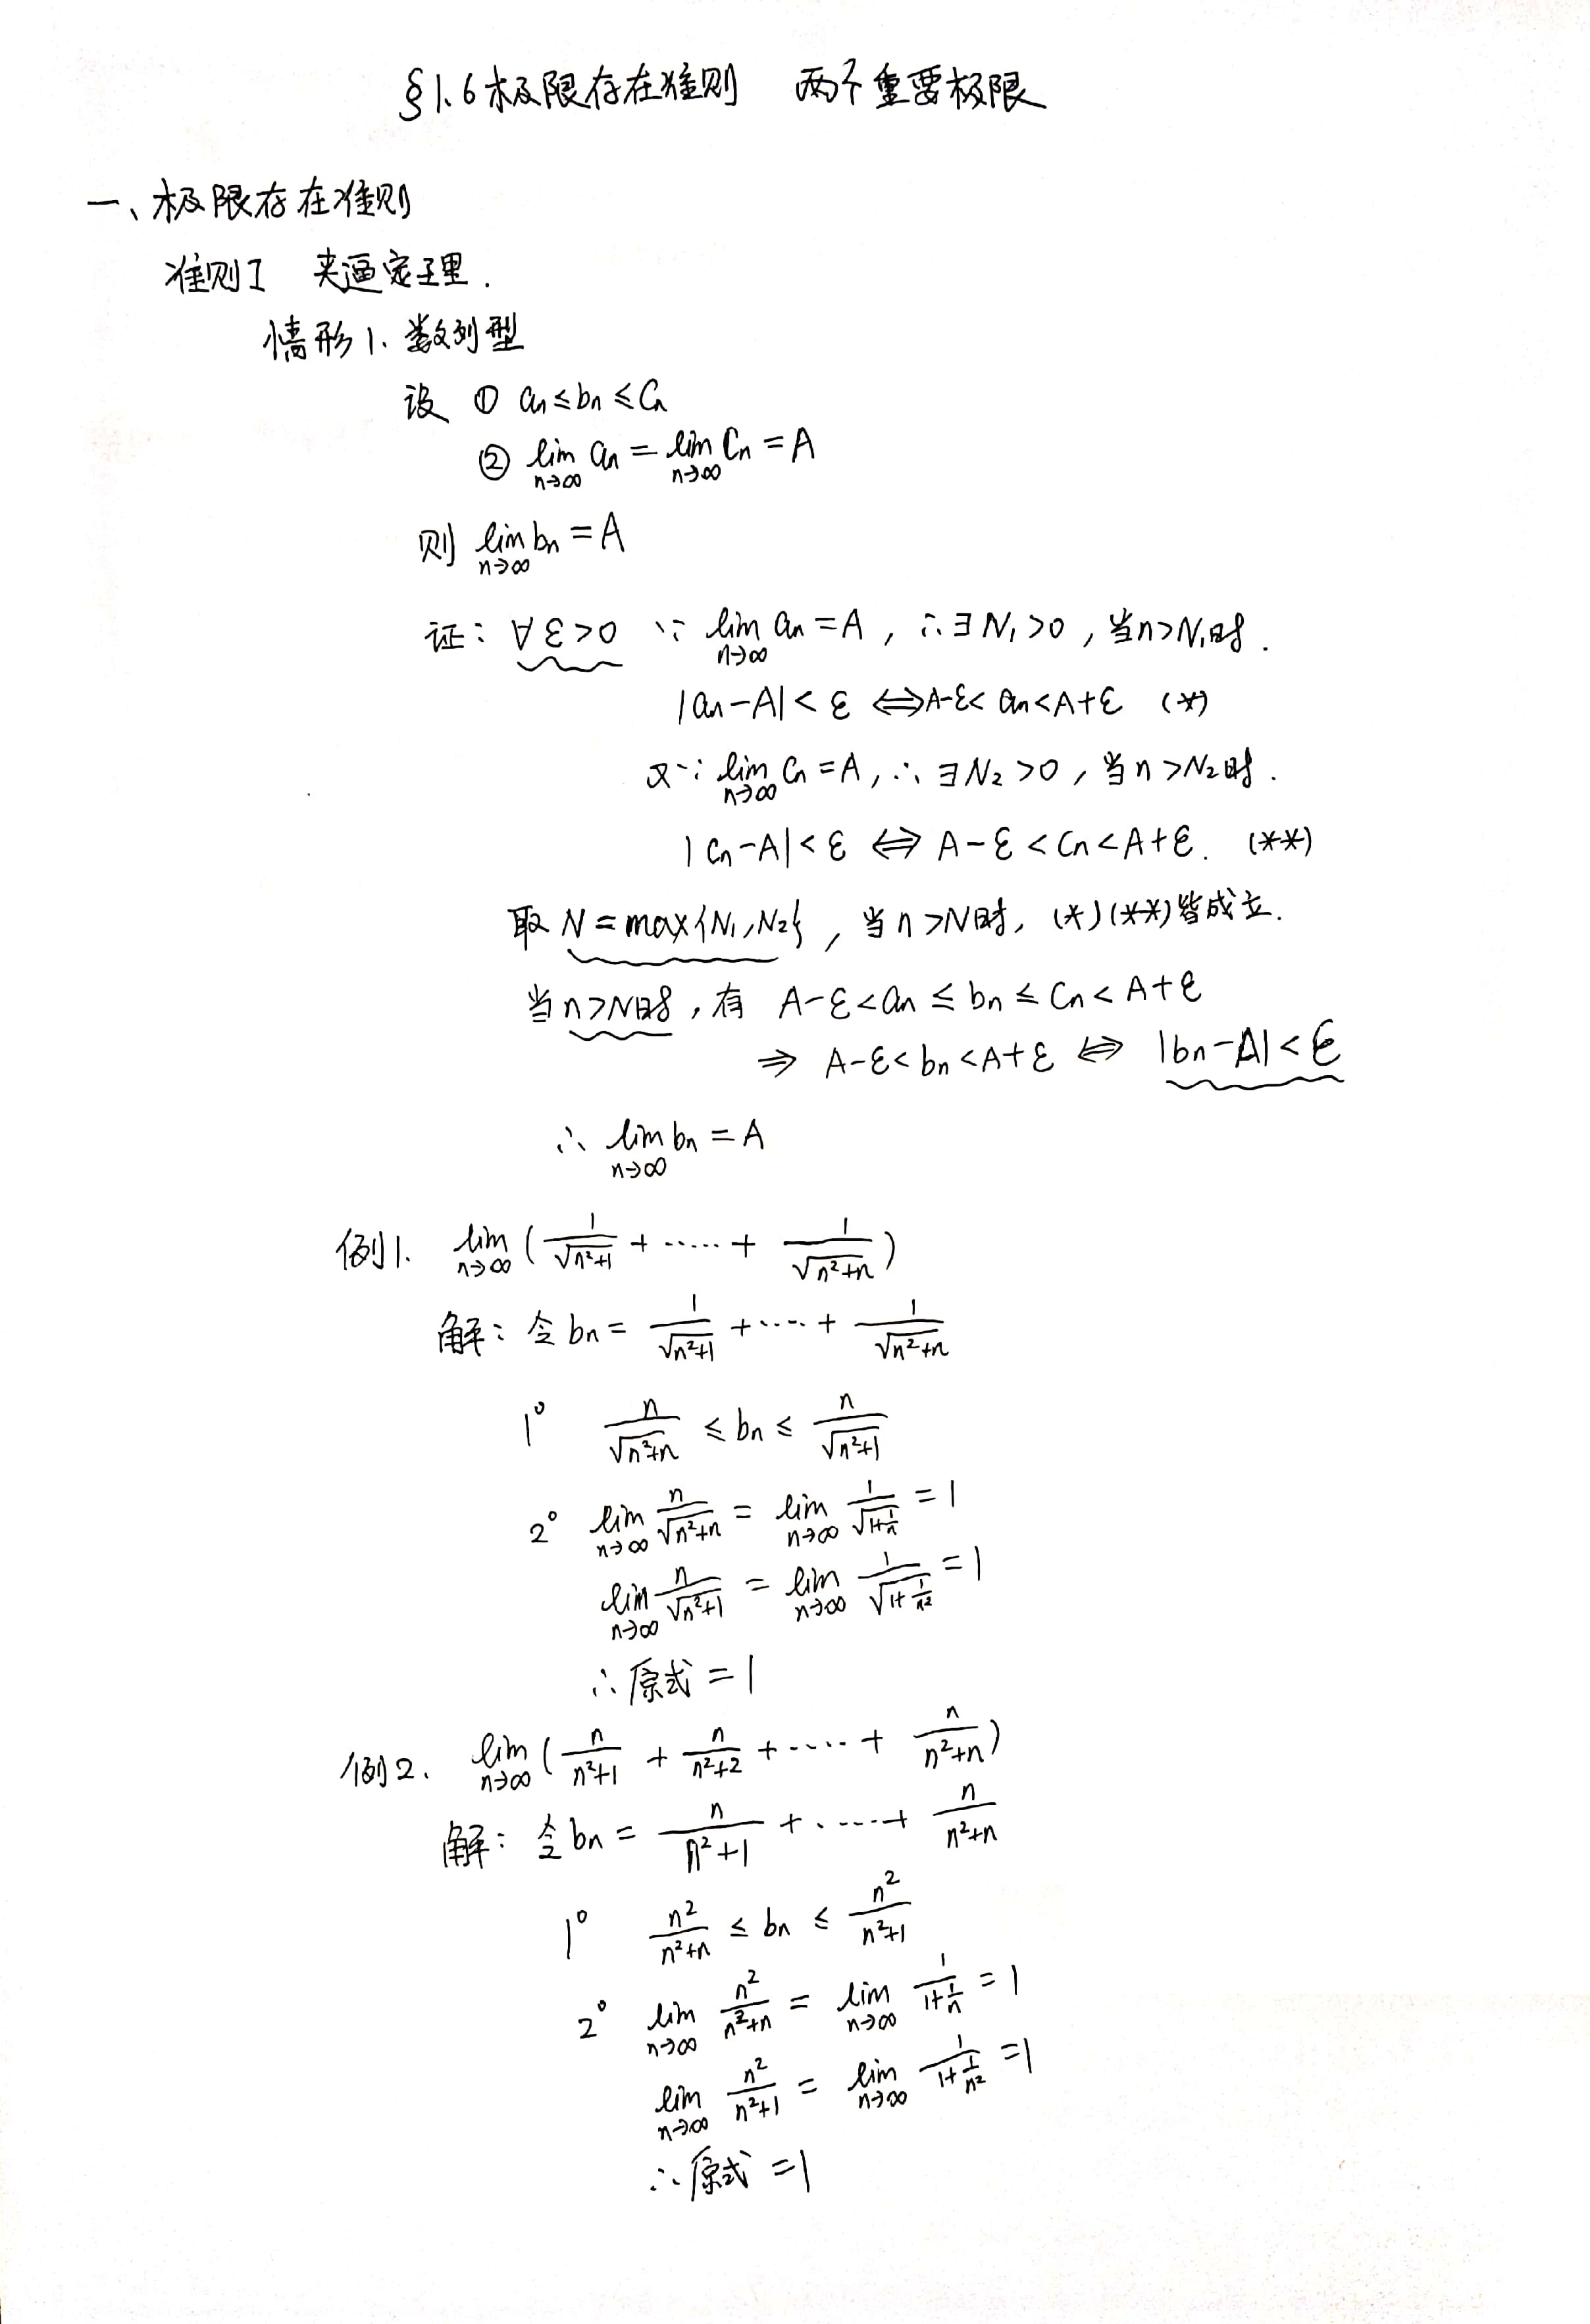 §1.6 极限存在准则 两个重要极限
一、极限存在准则
准则I 夹逼定理.
情形1. 数列型
设 ① aₙ≤bₙ≤Cₙ
② lim_{n→∞} aₙ = lim_{n→∞} Cₙ = A
则 lim_{n→∞} bₙ = A
证: ∀ε>0 ∵ lim_{n→∞} aₙ = A, ∴∃N₁>0, 当n>N₁时.
|aₙ-A|<ε ⟺ A-ε<aₙ<A+ε (*)
又∵ lim_{n→∞} Cₙ = A, ∴∃N₂>0, 当n>N₂时.
|Cₙ-A|<ε ⟺ A-ε<Cₙ<A+ε. (**)
取 N=max{N₁,N₂}, 当n>N时, (*)(**)皆成立.
当n>N时, 有 A-ε<aₙ≤bₙ≤Cₙ<A+ε
⇒ A-ε<bₙ<A+ε ⟺ |bₙ-A|<ε
∴ lim_{n→∞} bₙ = A
例1. lim_{n→∞} (1/√(n²+1) + ······ + 1/√(n²+n))
解: 令bₙ = 1/√(n²+1) + ····· + 1/√(n²+n)
1° n/√(n²+n) ≤ bₙ ≤ n/√(n²+1)
2° lim_{n→∞} n/√(n²+n) = lim_{n→∞} 1/√(1+1/n) = 1
lim_{n→∞} n/√(n²+1) = lim_{n→∞} 1/√(1+1/n²) = 1
∴原式=1
例2. lim_{n→∞} (n/(n²+1) + n/(n²+2) + ····· + n/(n²+n))
解: 令bₙ = n/(n²+1) + ······ + n/(n²+n)
1° n²/(n²+n) ≤ bₙ ≤ n²/(n²+1)
2° lim_{n→∞} n²/(n²+n) = lim_{n→∞} 1/(1+1/n) = 1
lim_{n→∞} n²/(n²+1) = lim_{n→∞} 1/(1+1/n²) = 1
∴原式=1